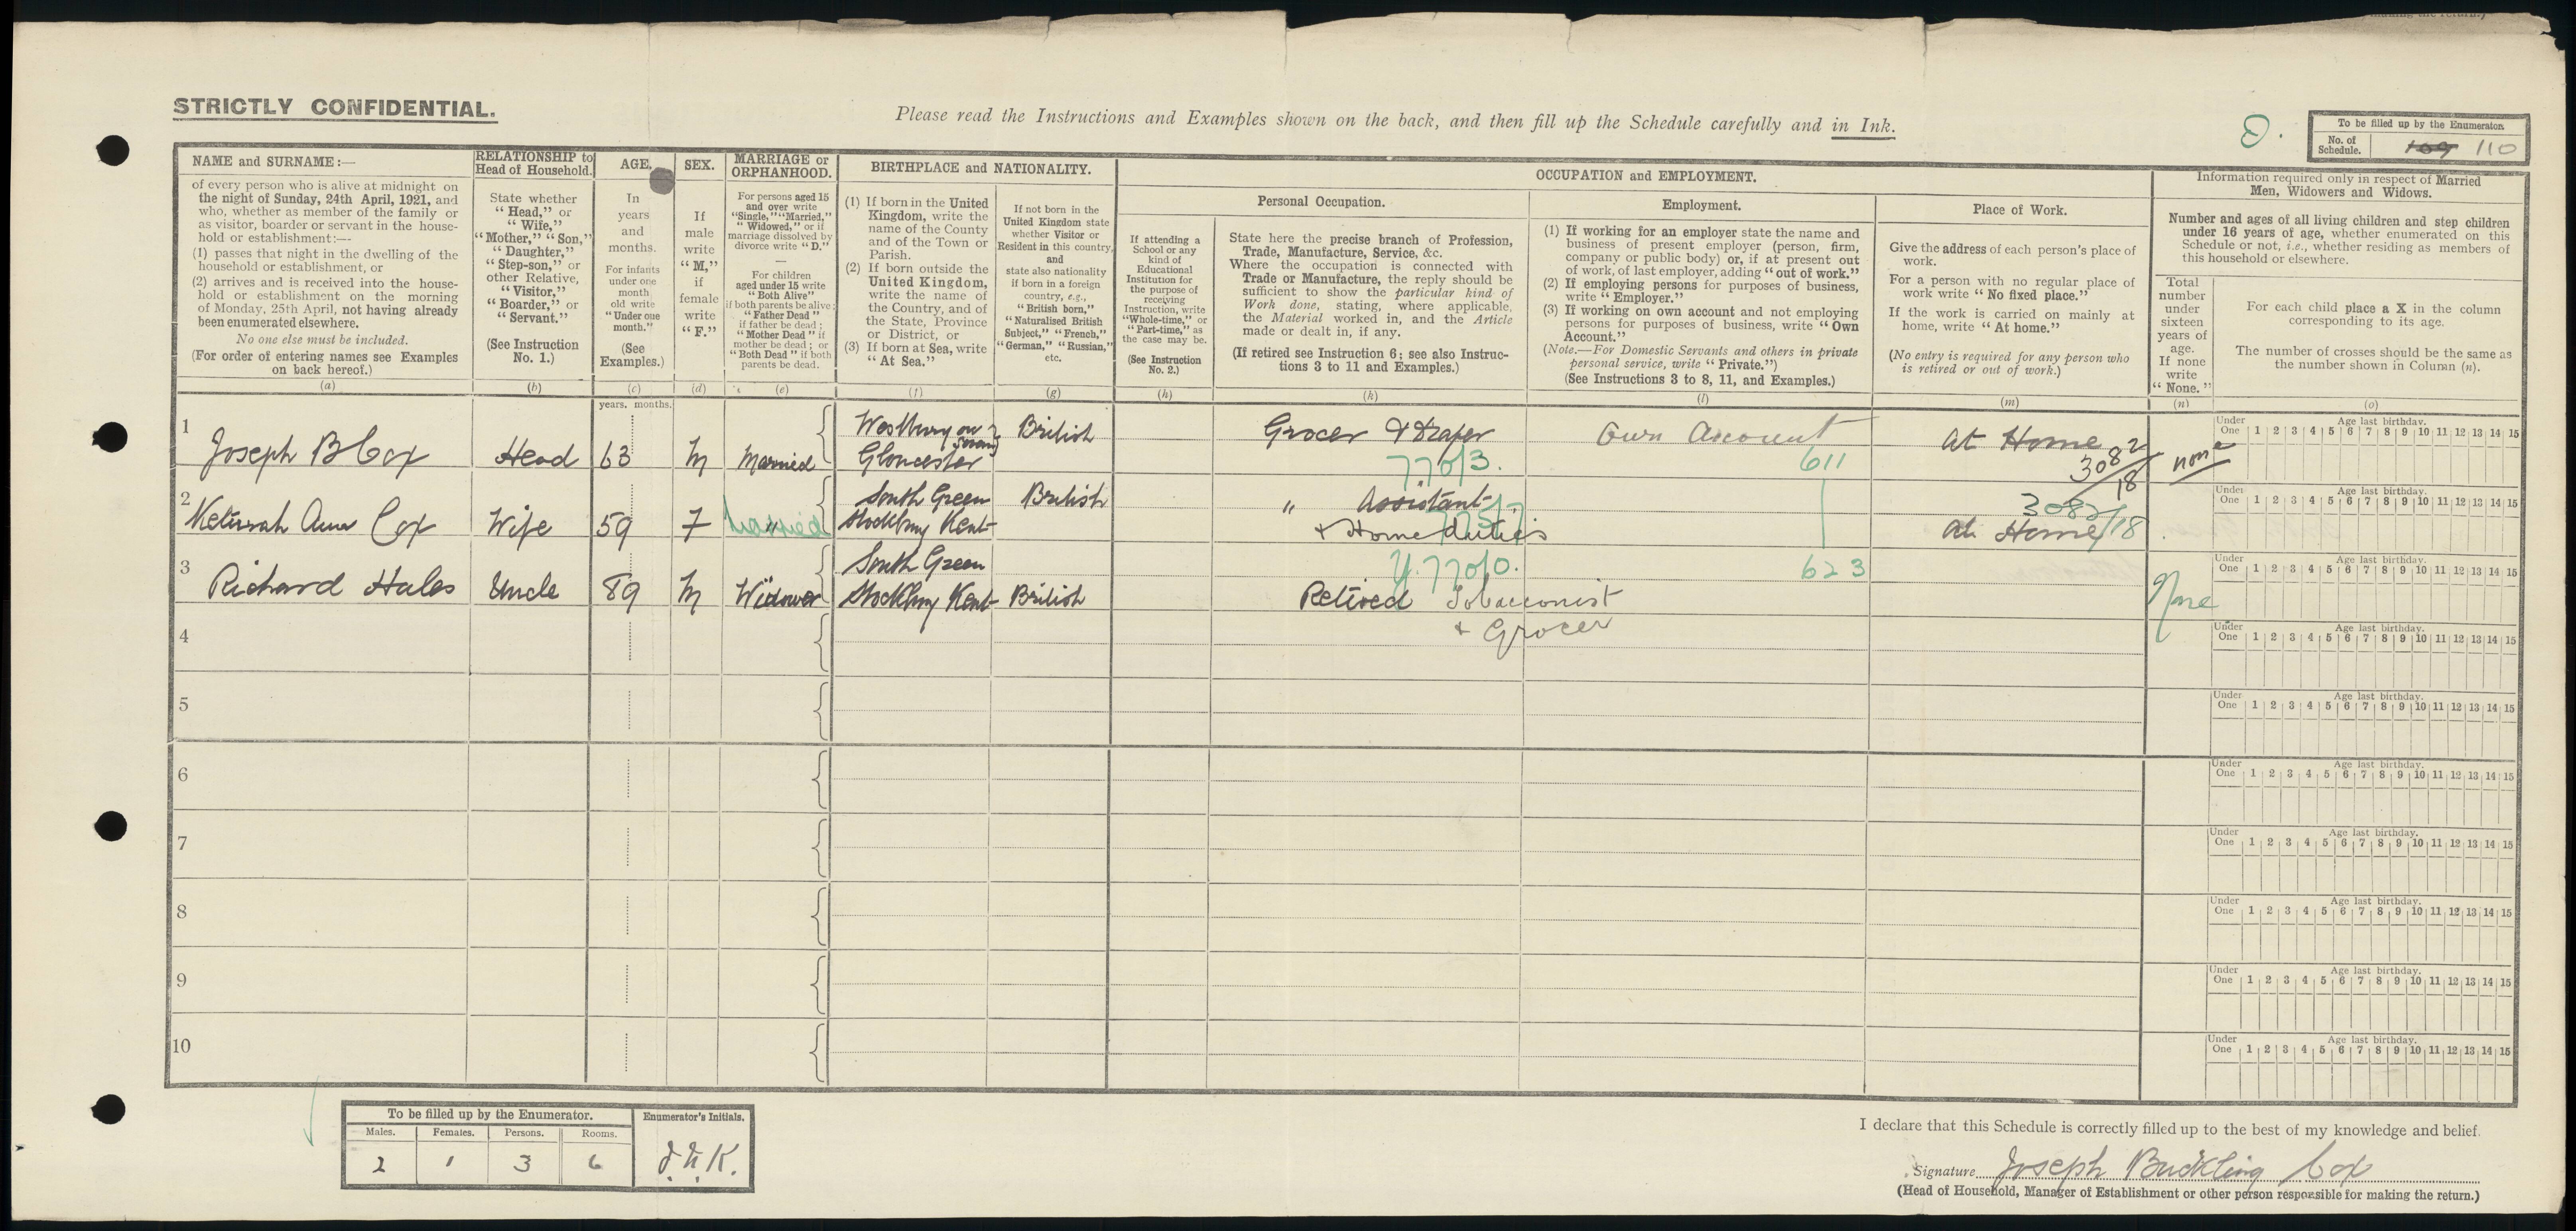 making the return.)
STRICTLY CONFIDENTIAL.
Please read the Instructions and Examples shown on the back, and then fill up the Schedule carefully and in Ink.
To be filled up by the Enumerator.
No. of Schedule. 109 110
NAME and SURNAME:—
of every person who is alive at midnight on
the night of Sunday, 24th April, 1921, and
who, whether as member of the family or
as visitor, boarder or servant in the house-
hold or establishment:—
(1) passes that night in the dwelling of the
household or establishment, or
(2) arrives and is received into the house-
hold or establishment on the morning
of Monday, 25th April, not having already
been enumerated elsewhere.
No one else must be included.
(For order of entering names see Examples
on back hereof.)
(a)
RELATIONSHIP to
Head of Household.
State whether
"Head," or
"Wife,"
"Mother," "Son,"
"Daughter,"
"Step-son," or
other Relative,
"Visitor,"
"Boarder," or
"Servant."
(See Instruction
No. 1.)
(b)
AGE.
In
years
and
months.
For infants
under one
month
old write
"Under one
month."
(See
Examples.)
(c)
SEX.
If
male
write
"M,"
if
female
write
"F."
(d)
MARRIAGE or
ORPHANHOOD.
For persons aged 15
and over write
"Single," "Married,"
"Widowed," or if
marriage dissolved by
divorce write "D."
For children
aged under 15 write
"Both Alive"
if both parents be alive;
"Father Dead"
if father be dead;
"Mother Dead" if
mother be dead; or
"Both Dead" if both
parents be dead.
(e)
BIRTHPLACE and NATIONALITY.
(1) If born in the United
Kingdom, write the
name of the County
and of the Town or
Parish.
(2) If born outside the
United Kingdom,
write the name of
the Country, and of
the State, Province
or District, or
(3) If born at Sea, write
"At Sea."
(f)
If not born in the
United Kingdom state
whether Visitor or
Resident in this country,
and
state also nationality
if born in a foreign
country, e.g.,
"British born,"
"Naturalised British
Subject," "French,"
"German," "Russian,"
etc.
(g)
OCCUPATION and EMPLOYMENT.
Personal Occupation.
If attending a
School or any
kind of
Educational
Institution for
the purpose of
receiving
Instruction, write
"Whole-time," or
"Part-time," as
the case may be.
(See Instruction
No. 2.)
(h)
State here the precise branch of Profession,
Trade, Manufacture, Service, &c.
Where the occupation is connected with
Trade or Manufacture, the reply should be
sufficient to show the particular kind of
Work done, stating, where applicable,
the Material worked in, and the Article
made or dealt in, if any.
(If retired see Instruction 6; see also Instruc-
tions 3 to 11 and Examples.)
(k)
Employment.
(1) If working for an employer state the name and
business of present employer (person, firm,
company or public body) or, if at present out
of work, of last employer, adding "out of work."
(2) If employing persons for purposes of business,
write "Employer."
(3) If working on own account and not employing
persons for purposes of business, write "Own
Account."
(Note.—For Domestic Servants and others in private
personal service, write "Private.")
(See Instructions 3 to 8, 11, and Examples.)
(l)
Place of Work.
Give the address of each person's place of
work.
For a person with no regular place of
work write "No fixed place."
If the work is carried on mainly at
home, write "At home."
(No entry is required for any person who
is retired or out of work.)
(m)
Information required only in respect of Married
Men, Widowers and Widows.
Number and ages of all living children and step children
under 16 years of age, whether enumerated on this
Schedule or not, i.e., whether residing as members of
this household or elsewhere.
Total
number
under
sixteen
years of
age.
If none
write
"None."
(n)
For each child place a X in the column
corresponding to its age.
The number of crosses should be the same as
the number shown in Column (n).
(o)
years. months.
1
Joseph B Cox Head 63 M Married Westbury on Severn Gloucester British Grocer & Draper Own Account At Home none
770/3. 611 3082/18
Under One Age last birthday. 1 2 3 4 5 6 7 8 9 10 11 12 13 14 15
2
Keturah Ann Cox Wife 59 F Married South Green Stockbury Kent British " Assistant
+ Home duties At Home
3082/18
Under One Age last birthday. 1 2 3 4 5 6 7 8 9 10 11 12 13 14 15
3
Richard Hales Uncle 89 M Widower South Green Stockbury Kent British Retired Tobacconist
& Grocer
Y. 770/0. 623 None
Under One Age last birthday. 1 2 3 4 5 6 7 8 9 10 11 12 13 14 15
4
Under One Age last birthday. 1 2 3 4 5 6 7 8 9 10 11 12 13 14 15
5
Under One Age last birthday. 1 2 3 4 5 6 7 8 9 10 11 12 13 14 15
6
Under One Age last birthday. 1 2 3 4 5 6 7 8 9 10 11 12 13 14 15
7
Under One Age last birthday. 1 2 3 4 5 6 7 8 9 10 11 12 13 14 15
8
Under One Age last birthday. 1 2 3 4 5 6 7 8 9 10 11 12 13 14 15
9
Under One Age last birthday. 1 2 3 4 5 6 7 8 9 10 11 12 13 14 15
10
Under One Age last birthday. 1 2 3 4 5 6 7 8 9 10 11 12 13 14 15
To be filled up by the Enumerator.
Males. Females. Persons. Rooms.
2 1 3 6
Enumerator's Initials.
I declare that this Schedule is correctly filled up to the best of my knowledge and belief.
Signature Joseph Buckling Cox
(Head of Household, Manager of Establishment or other person responsible for making the return.)